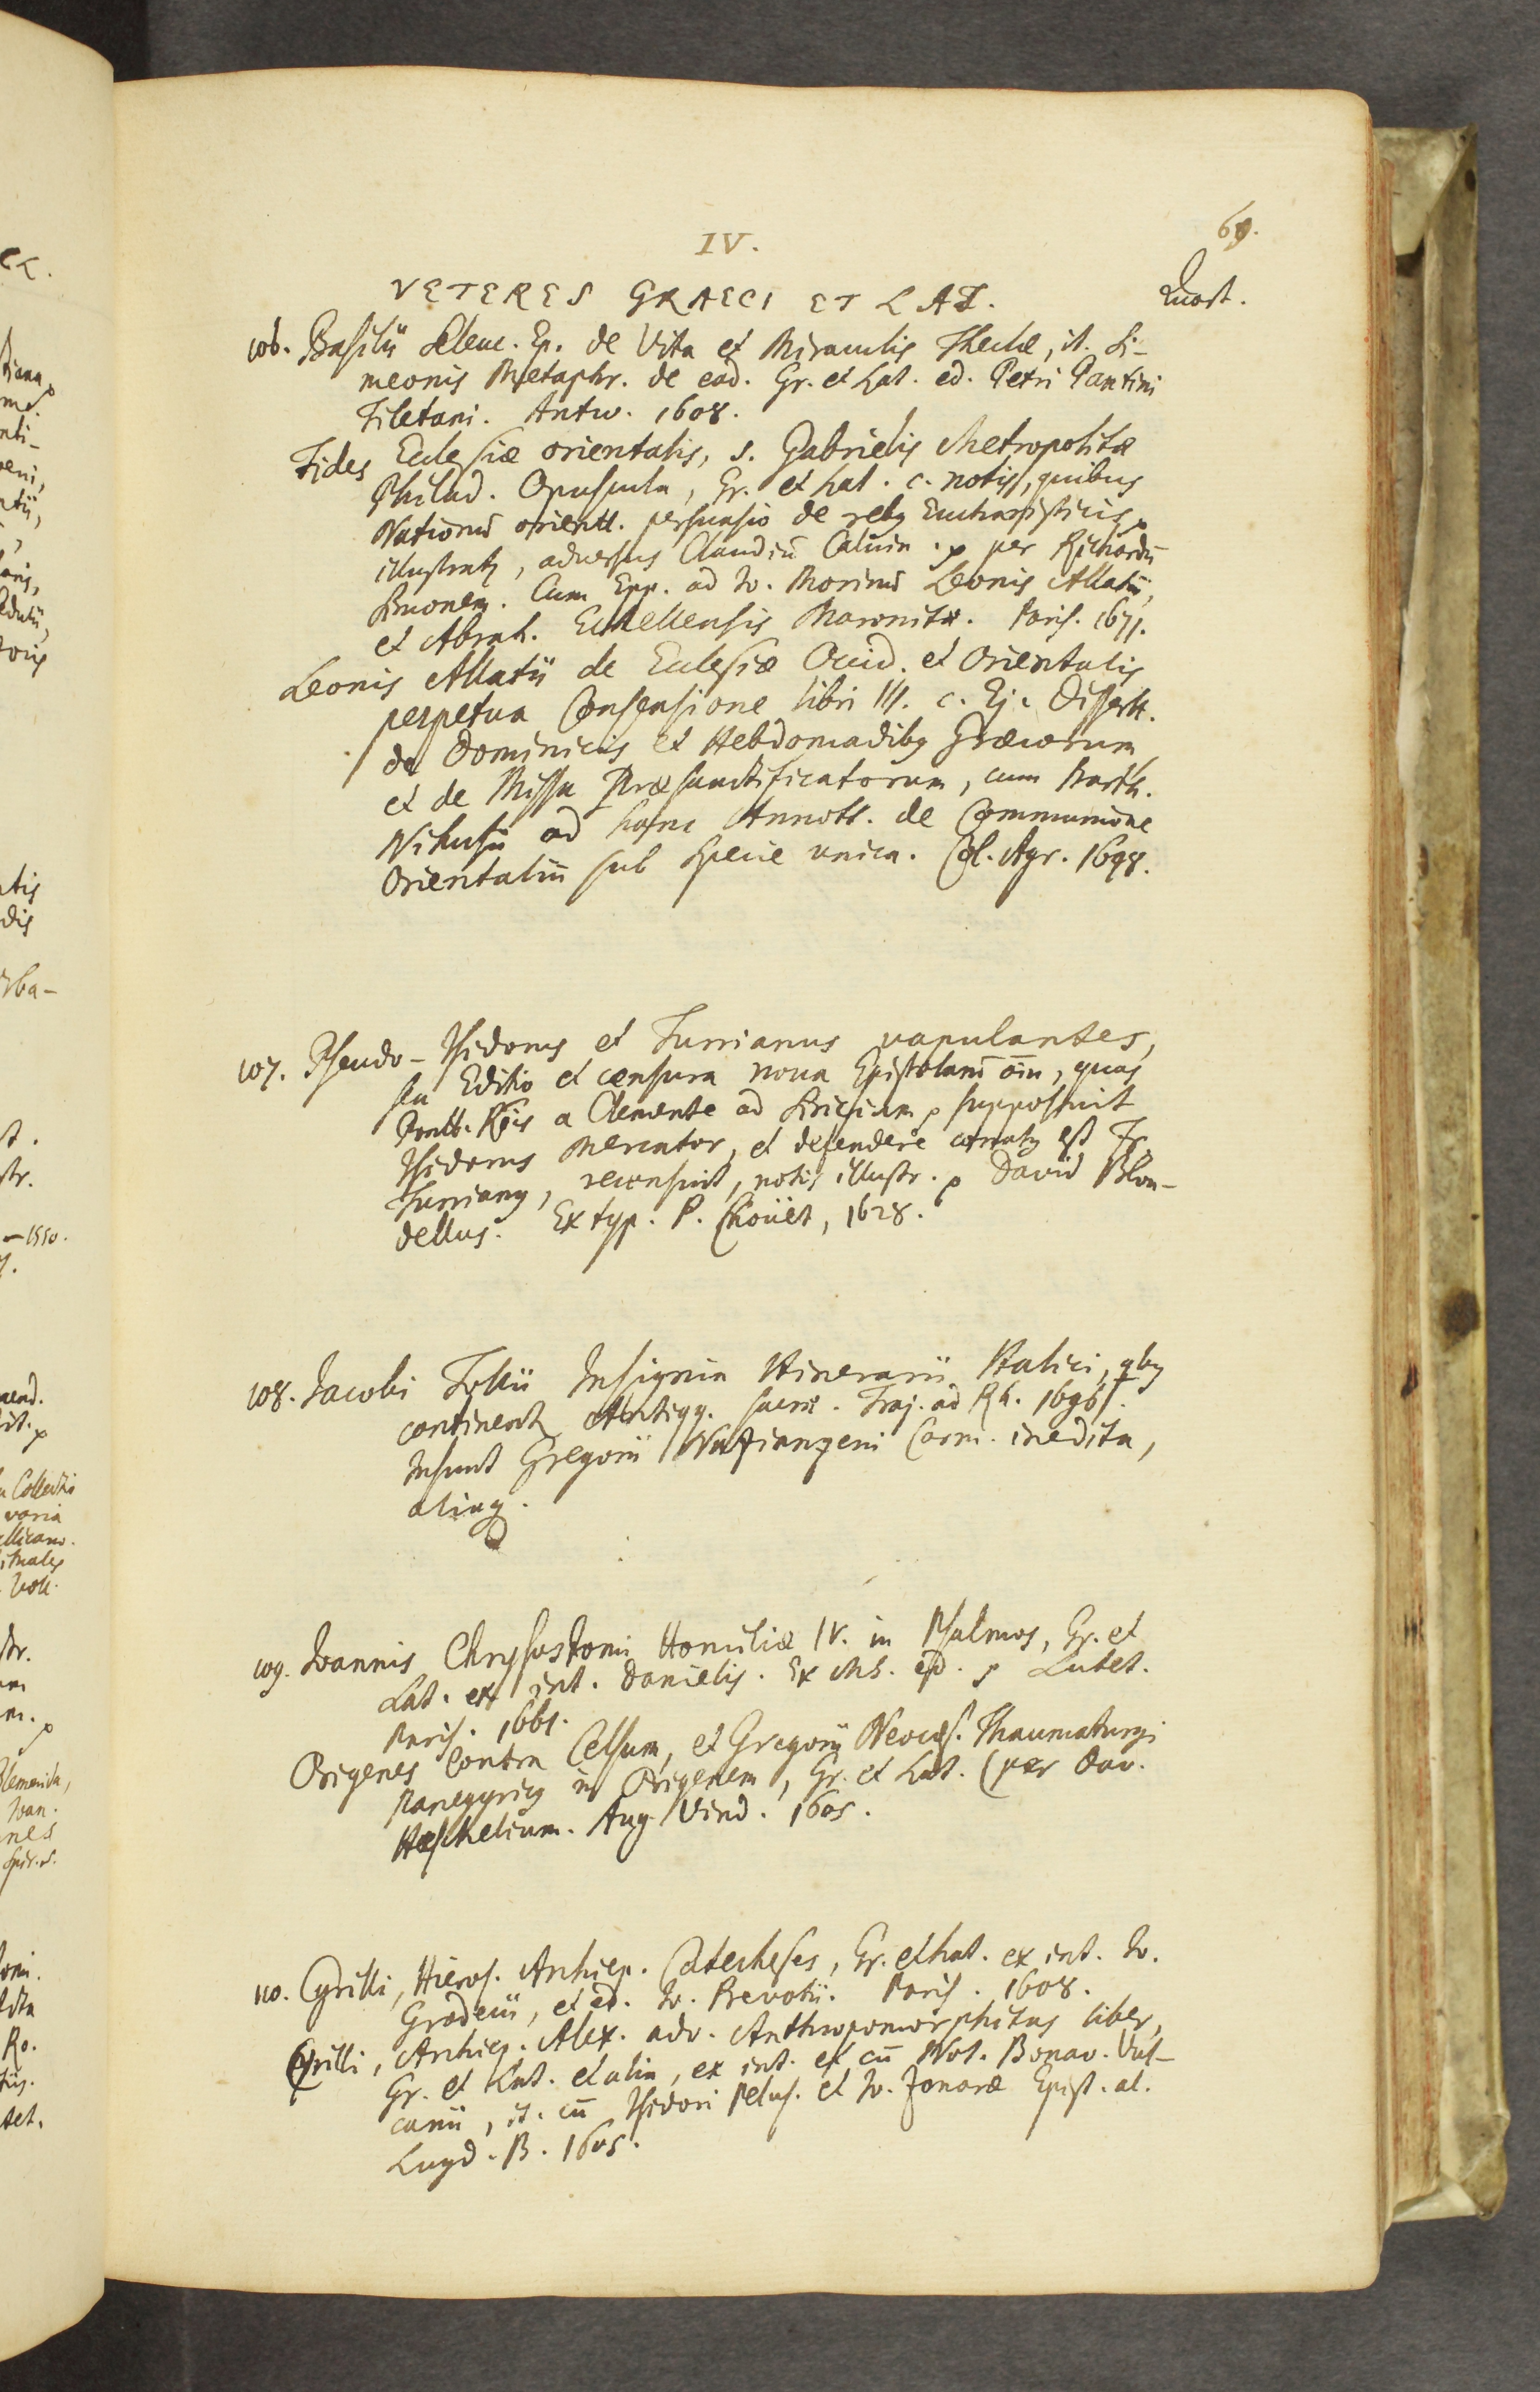 IV.
69.
VETERES GRAECI ET LAT.
Quart.
106. Basilii Seleuc. Ep. de Vita et Miraculis Theclæ, it. Si-
meonis Metaphr. de ead. Gr. et Lat. ed. Petri Pantini
Tiletani. Antw. 1608.
Fides Ecclesiæ orientalis, s. Gabrielis Metropolitæ
Philad. Opuscula, Gr. et Lat. c. notis, quibus
Nationū orientt. persuasio de rebꝫ Eucharisticis
illustratꝫ, adversus Claudiū Calvin. per Richardū
Simonem. Cum Epp. ad Io. Morinū Leonis Allatii,
et Abrah. Echellensis Maronitæ. Paris. 1671.
Leonis Allatii de Ecclesiæ Occid. et Orientalis
perpetua Consensione libri III. c. Ej. Dissertt.
de Dominicis et Hebdomadibꝫ Græcorum,
et de Missa Præsanctificatorum, cum Barth.
Nihusii ad hanc Annott. de Communione
Orientaliū sub specie unica. Col. Agr. 1698.
107. Pseudo-Isidorus et Turrianus vapulantes,
seu Editio et censura nova Epistolarū om̄, quas
Pontt. Rōis a Clemente ad Siricium supposuit
Isidorus Mercator, et defendere conatꝫ est Fr.
Turrianꝫ, recensuit, notis illustr. David Blon-
dellus. Ex typ. P. Chouët, 1628.
108. Jacobi Tollii Insignia Itinerarii Italici, qbꝫ
continentꝫ Antiqq. sacræ. Traj. ad Rh. 1696.
Insunt Gregorii Nazianzeni Carm. inedita,
aliaqꝫ.
109. Ioannis Chrysostomi Homiliæ IV. in Psalmos, Gr. et
Lat. ex int. Danielis. Ex Ms. ed. Lutet.
Paris. 1661.
Origenes contra Celsum, et Gregorii Neocæs. Thaumaturgi
Panegyricꝫ in Origenem, Gr. et Lat. (per Dav.
Hœschelium. Aug. Vind. 1605.
110. Cyrilli, Hieros. Archiep. Catecheses, Gr. et Lat. ex int. Io.
Grodecii, et ed. Io. Prevotii. Paris. 1608.
Cyrilli, Archiep. Alex. adv. Anthropomorphitas liber,
Gr. et Lat. et alia, ex int. et cū Not. Bonav. Vul-
canii, it. cū Isidori Pelus. et Io. Zonaræ Epist. al.
Lugd. B. 1605.